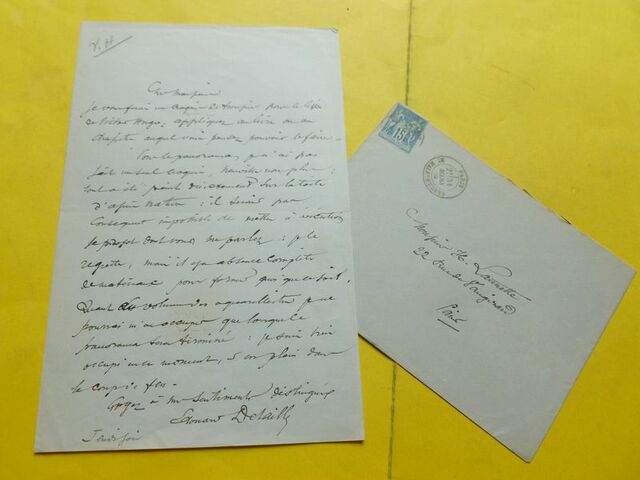 V. H
Cher Monsieur
Je vous ferai un croquis de troupier pour le livre
de Victor Hugo; appliquez au livre ou au
chapitre auquel vous pensez pouvoir le faire.
Pour le panorama, je n'ai pas
fait un seul croquis, Neuville non plus;
tout a été peint directement sur la toile
d'après nature: il serait par
conséquent impossible de mettre à exécution
le projet dont vous me parlez: je le
regrette, mais il y a absence complète
de matériaux pour former quoi que ce soit.
Quant au volume des aquarellistes je ne
pourrai m'en occuper que lorsque le
panorama sera terminé: je suis très
occupé en ce moment, et en plein dans
le coup de feu.
Croyez à mes sentiments distingués
Edouard Detaille
Jeudi soir
15
PARIS
Monsieur H. Launette
22 rue de Vaugirard
Paris